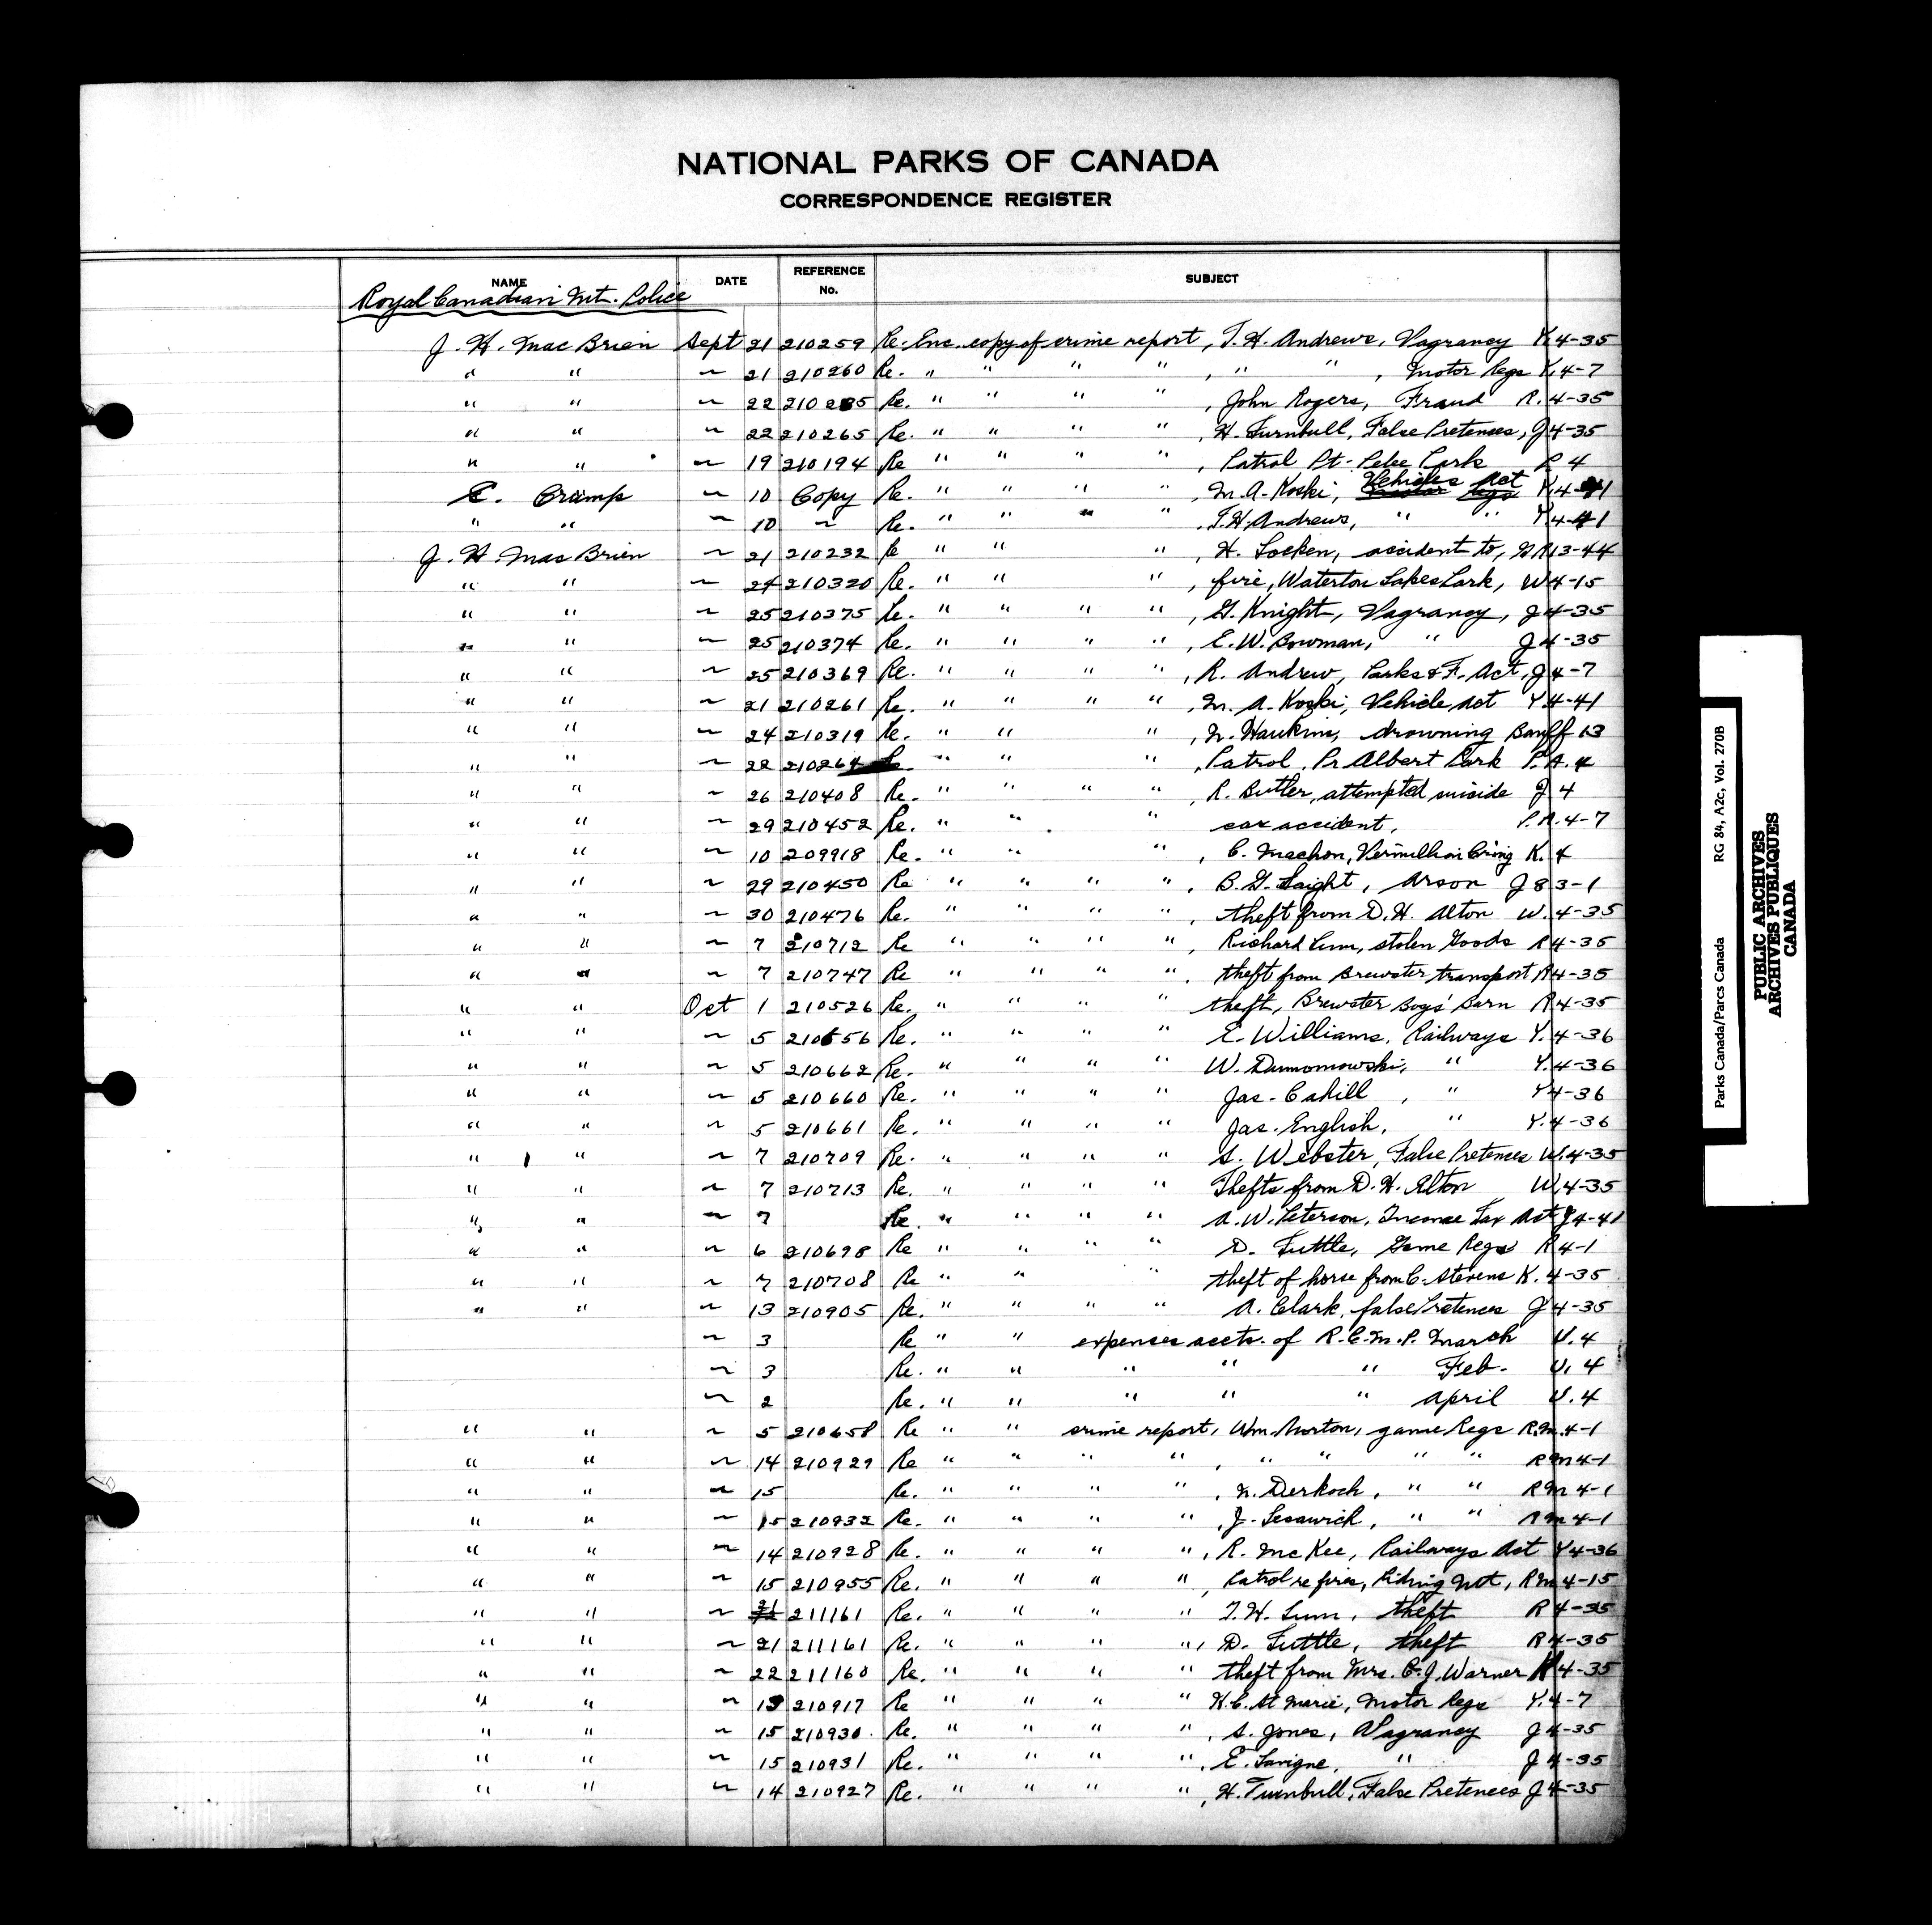 NATIONAL PARKS OF CANADA
CORRESPONDENCE REGISTER
NAME DATE REFERENCE No. SUBJECT
Royal Canadian Mt. Police
J. H. MacBrien Sept 21 210259 Re. Enc. copy of crime report, T. H. Andrews, Vagrancy Y. 4-35
" " ~ 21 210260 Re. " " " " , " " , Motor Regs Y. 4-7
" " ~ 22 210285 Re. " " " " , John Rogers, Fraud R. 4-35
" " ~ 22 210265 Re. " " " " , H. Turnbull, False Pretences, J 4-35
" " ~ 19 210194 Re " " " " , Patrol Pt. Pelee Park P. 4
E. Crump ~ 10 Copy Re. " " " " , M. A. Koski, Vehicles Act Y. 4-41
" " ~ 10 ~ Re. " " " " , T. H. Andrews, " " Y. 4-41
J. H. MacBrien ~ 21 210232 Re " " " , H. Locken, accident to, 13-44
" " ~ 24 210320 Re. " " " , fire, Waterton Lakes Park, W 4-15
" " ~ 25 210375 Re. " " " " , G. Knight, Vagrancy, J 4-35
" " ~ 25 210374 Re. " " " " , E. W. Bowman, " J 4-35
" " ~ 25 210369 Re. " " " " , R. Andrew, Parks & F. Act, J 4-7
" " ~ 21 210261 Re. " " " " , M. A. Koski, Vehicle Act Y 4-41
" " ~ 24 210319 Re. " " " , N. Hawkins, drowning Banff 13
" " ~ 22 210264 Re. " " " , Patrol, Pr Albert Park P. A. 4
" " ~ 26 210408 Re. " " " " , R. Butler, attempted suicide J 4
" " ~ 29 210452 Re. " " " car accident, P. A. 4-7
" " ~ 10 209918 Re. " " " , C. Machon, Vermillion Cr'ing K. 4
" " ~ 29 210450 Re " " " " , B. G. Haight, Arson J 83-1
" " ~ 30 210476 Re. " " " " , theft from D. H. Alton W. 4-35
" " ~ 7 210712 Re " " " " , Richard Lum, stolen Goods R 4-35
" " ~ 7 210747 Re " " " " , theft from Brewster transport R 4-35
" " Oct 1 210526 Re. " " " " theft, Brewster Boys' Barn R 4-35
" " ~ 5 210656 Re. " " " " E. Williams, Railways Y. 4-36
" " ~ 5 210662 Re. " " " " W. Dumomowski, " Y. 4-36
" " ~ 5 210660 Re. " " " " Jas. Cahill , " Y 4-36
" " ~ 5 210661 Re. " " " " Jas. English, " Y. 4-36
" " ~ 7 210709 Re. " " " " S. Webster, False Pretences W. 4-35
" " ~ 7 210713 Re. " " " " Thefts from D. H. Alton W. 4-35
" " ~ 7 Re. " " " " A. W. Peterson, Income Tax Act J 4-41
" " ~ 6 210698 Re " " " " D. Tuttle, Game Regs R 4-1
" " ~ 7 210708 Re " " " theft of horse from C. Stevens K. 4-35
" " ~ 13 210905 Re. " " " " A. Clark, false Pretences J 4-35
~ 3 Re " " expenses accts. of R. C. M. P. March U. 4
~ 3 Re. " " " " " Feb. U. 4
~ 2 Re. " " " " " April U. 4
" " ~ 5 210658 Re " " crime report, Wm. Norton, game Regs R.M. 4-1
" " ~ 14 210929 Re " " " " , " " " " R M 4-1
" " ~ 15 Re. " " " " , N. Derkoch, " " R M 4-1
" " ~ 15 210932 Re. " " " " , J. Lesawich, " " R M 4-1
" " ~ 14 210928 Re. " " " " , R. McKee, Railways Act Y 4-36
" " ~ 15 210955 Re. " " " " , Patrol re fires, Riding Mt, R M 4-15
" " ~ 21 211161 Re. " " " " T. H. Lum, theft R 4-35
" " ~ 21 211161 Re. " " " " , D. Tuttle, theft R 4-35
" " ~ 22 211160 Re. " " " " theft from Mrs. C. J. Warner R 4-35
" " ~ 13 210917 Re " " " " H. C. St Marie, Motor Regs Y. 4-7
" " ~ 15 210930. Re. " " " " , S. Jones, Vagrancy J 4-35
" " ~ 15 210931 Re. " " " " , E. Lavigne, " J 4-35
" " ~ 14 210927 Re. " " " " , H. Turnbull, False Pretences J 4-35
Parks Canada/Parcs Canada RG 84, A2c, Vol. 270B
PUBLIC ARCHIVES
ARCHIVES PUBLIQUES
CANADA